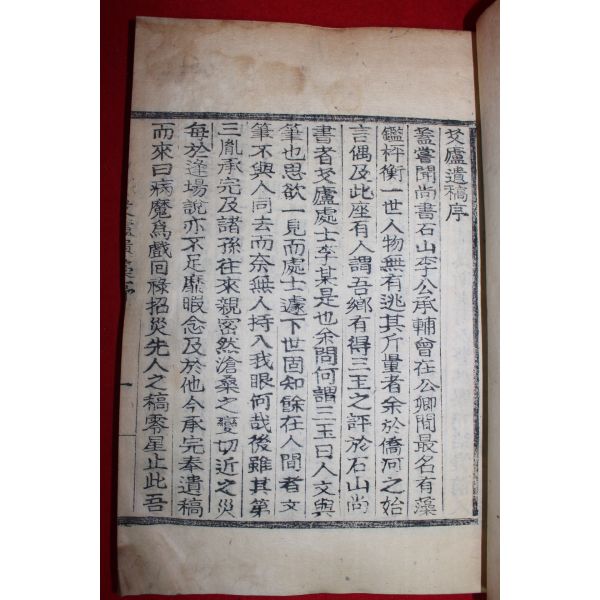 艾廬遺稿序
蓋嘗聞尚書石山李公承輔曾在公卿間最名有藻
鑑枰衡一世人物無有逃其斤量者余於僑河之始
言偶及此座有人謂吾鄉有得三玉之評於石山尚
書者艾廬處士李某是也余問何謂三玉曰人文與
筆也思欲一見而處士遽下世固知餘在人間者文
筆不與人同去而奈無人持入我眼何哉後雖其第
三胤承完及諸孫往來親密然滄桑之變切近之災
每於逢場說亦不足靡暇念及於他今承完奉遺稿
而來曰病魔爲戲回祿招災先人之稿零星止此吾
遺稿序
一